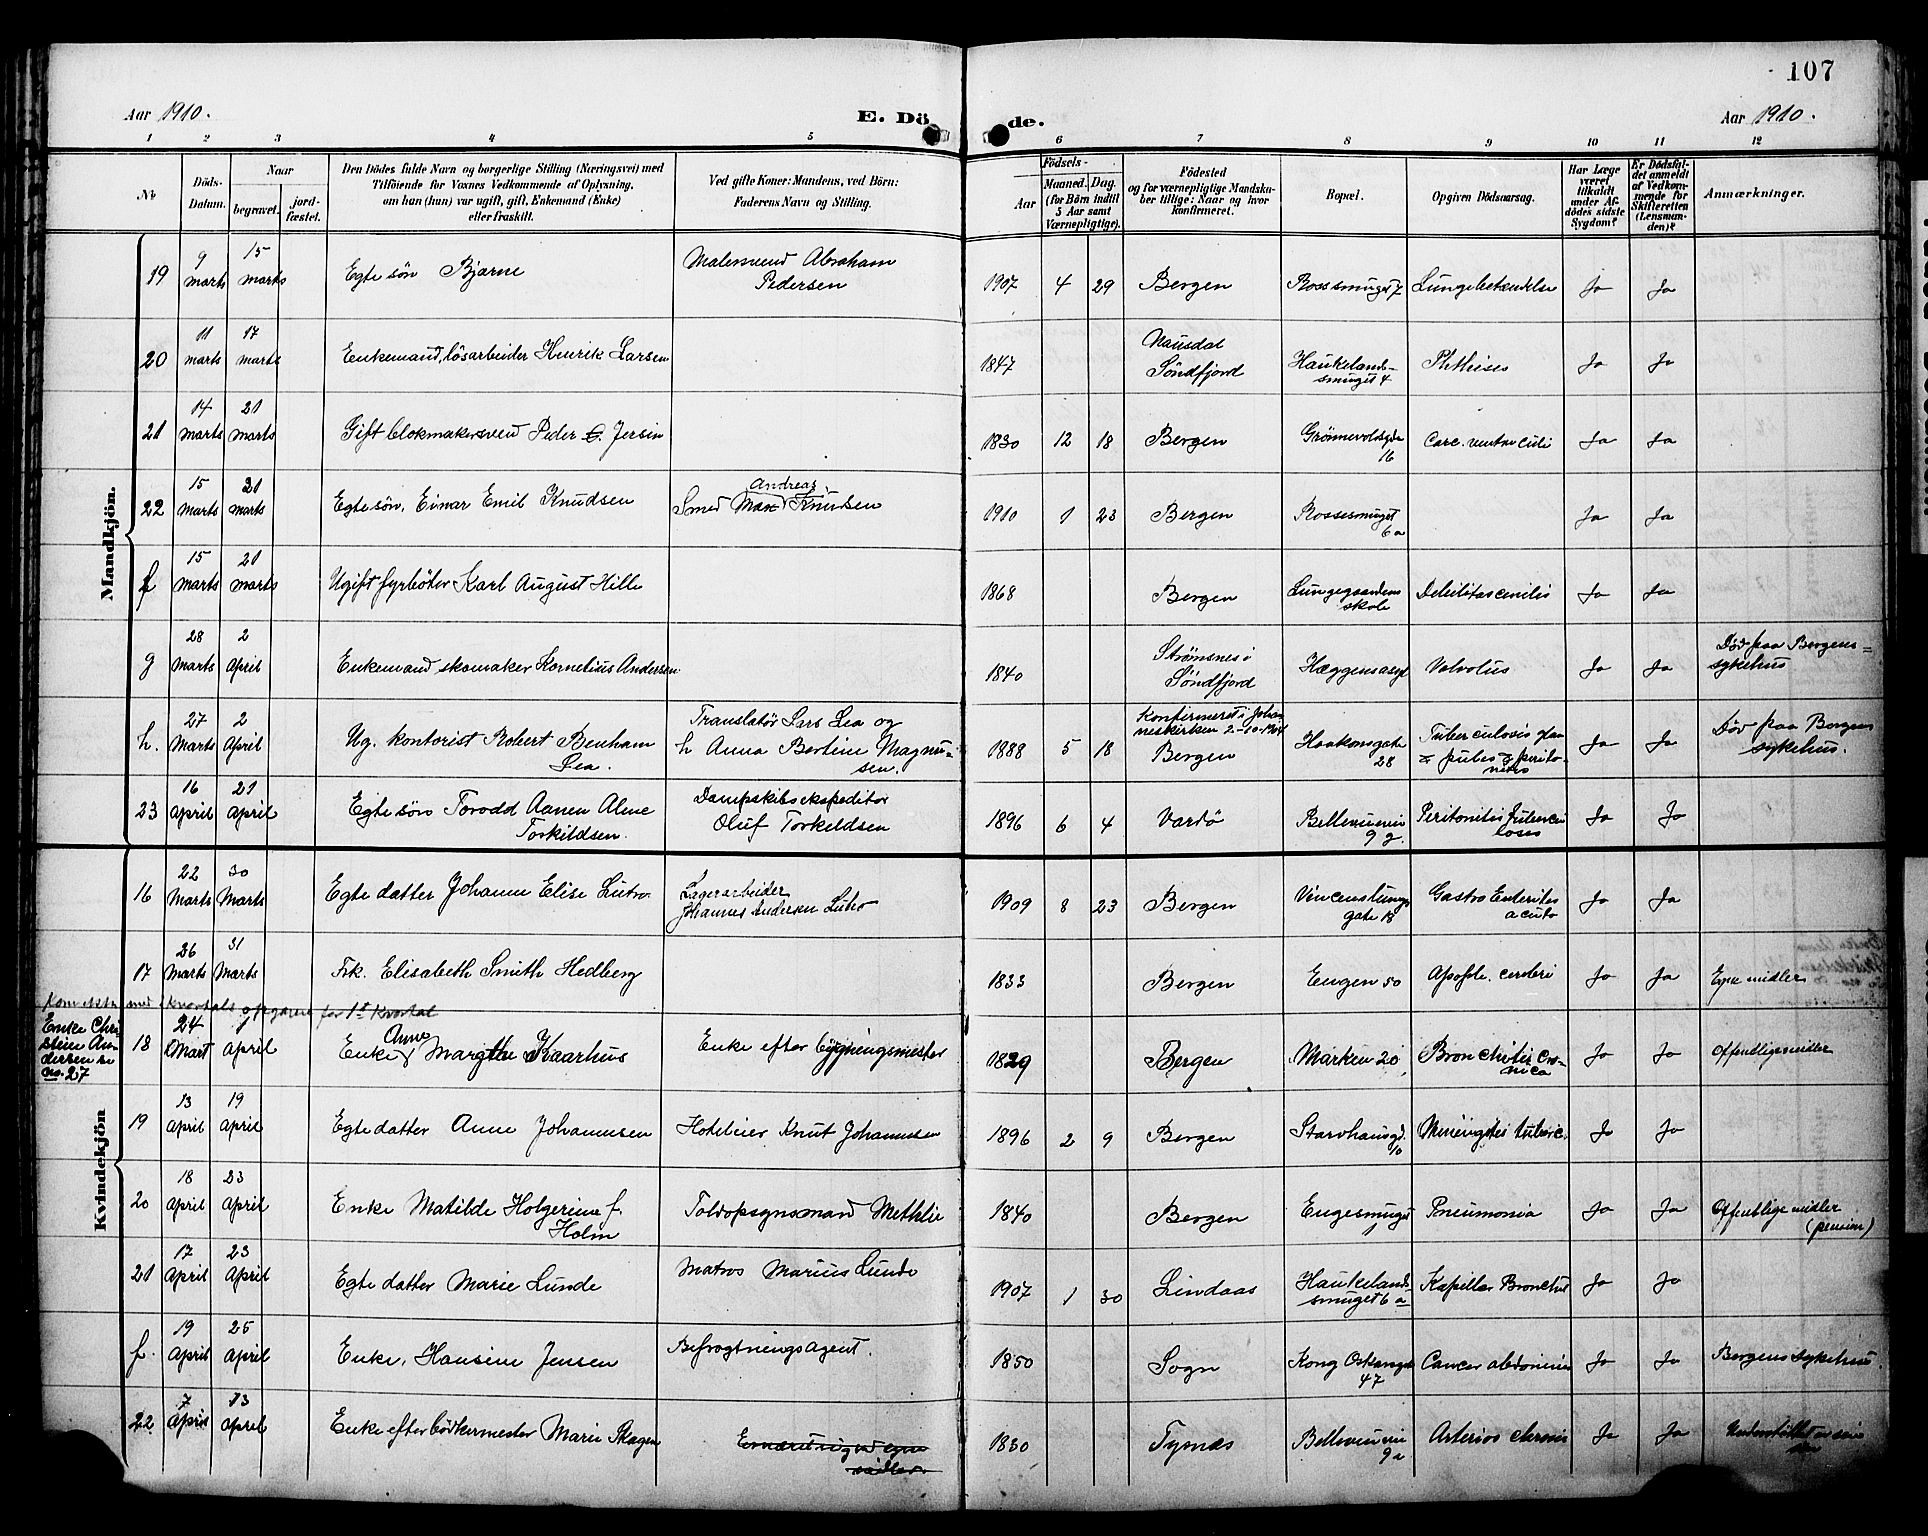 107
Aar 1910.
E. Dö
de.
Aar 1910.
1 2 3 4 5 6 7 8 9 10 11 12
No
Döds-
Datum.
Naar
begravet.
jord-
fæstet.
Den Dödes fulde Navn og borgerlige Stilling (Næringsvei) med
Tilföiende for Voxnes Vedkommende af Oplysning,
om han (hun) var ugift, gift, Enkemand (Enke)
eller fraskilt.
Ved gifte Koner: Mandens, ved Börn:
Faderens Navn og Stilling.
Födsels-
Aar
Maaned. Dag.
(for Børn indtil
5 Aar samt
Værnepligtige).
Födested
og for værnepligtige Mandska-
ber tillige: Naar og hvor
konfirmeret.
Bopæl.
Opgiven Dödsaarsag.
Har Læge
været
tilkaldt
under Af-
dödes sidste
Sygdom?
Er Dödsfal-
det anmeldt
af Vedkom-
mende for
Skifteretten
(Lensman-
den)?
Anmærkninger.
Mandkjön.
19 9 marts 15 marts Egte søn Bjarne Malersvend Abraham Pedersen 1907 4 29 Bergen Rossesmuget 7 Lungebetændelse Ja Ja
20 11 marts 17 marts Enkemand, løsarbeider Henrik Larsen 1847 Naustdal Søndfjord Haukelandsmuget 4 Phthisis Ja Ja
21 14 marts 21 marts Gift blokmakersvend Peder Jersin 1830 12 18 Bergen Grønnevoldsgde 16 Carc. ventriculi Ja Ja
22 15 marts 21 marts Egte søn, Einar Emil Knudsen Smed Andreas Knudsen 1910 1 23 Bergen Rossesmuget 6a Ja Ja
f 15 marts 21 marts Ugift fyrbøter Karl August Hille 1868 Bergen Lungegaardens skole Debilitas cenilis Ja Ja
g 28 marts 2 april Enkemand skomaker Kornelius Andersen 1840 Strømsnes i Søndfjord Hæggens asyl Volvolus Ja Ja Død paa Bergens sykehus
h. 27 Marts 2 April Ug. kontorist Robert Benham Lea. Translatør Lars Lea og h Anna Bertine Magnussen. 1888 5 18 Konfirmeret i Johanneskirken 2-10-1904 Bergen Haakonsgate 28 Tuberculosis Ja Ja Død paa Bergens sykehus.
23 16 april 21 April Egte søn Torodd Aanen Alme Torkildsen. Dampskibsekspeditør Oluf Torkeldsen 1896 6 4 Vardø Bellevueveien 9 Peritonitis tuberculosis Ja Ja
Kvindekjön
16 22 Marts 30 Marts Egte datter Johanne Elise Lutro Lagerarbeider Johannes Andersen Lutro 1909 8 23 Bergen Vincens Lunges gate 18 Gastro Enterites acuta Ja Ja
17 26 Marts 31 Marts Frk. Elisabeth Smith Hedberg 1833 Bergen Engen 50 Apople. cerebri Ja Ja Egne midler
kvartals opgaven for 1st kvartal
Enke Christine Andersen se no. 27
18 24 Mart 7 April Enke Anne Margthe Kaarhus Enke efter bygningsmester 1829 Bergen Marken 20 Bronchitis Cronica Ja Ja Offentlige midler
19 13 April 19 April Egte datter Anne Johannesen Hoteleier Knut Johannesen 1896 2 9 Bergen Starvhausgd. 10 Meningitis tuberc. Ja Ja
20 18 April 23 April Enke Matilde Holgerine f. Holm Toldopsynsmand Methlie 1840 Bergen Engesmuget 1 Pneumonia Ja Ja Offentlige midler (pension)
21 17 April 23 April Egte datter Marie Lunde Matros Marius Lunde 1907 1 30 Lindaas Haukelandsmuget 6a Kapillær Bronchit Ja Ja
f. 19 April 25 April Enke, Hansine Jensen Befragtningsagent. 1850 Sogn Kong Oskarsgt 47 Cancer abdominis Ja Ja Bergens sykehus.
22 7 April 13 April Enke efter bødkermester Marie Skagen Ernæret sig ved egne midler 1830 Tysnæs Bellevueveie 9a Arterios chronis Ja Ja Understøttet av sin